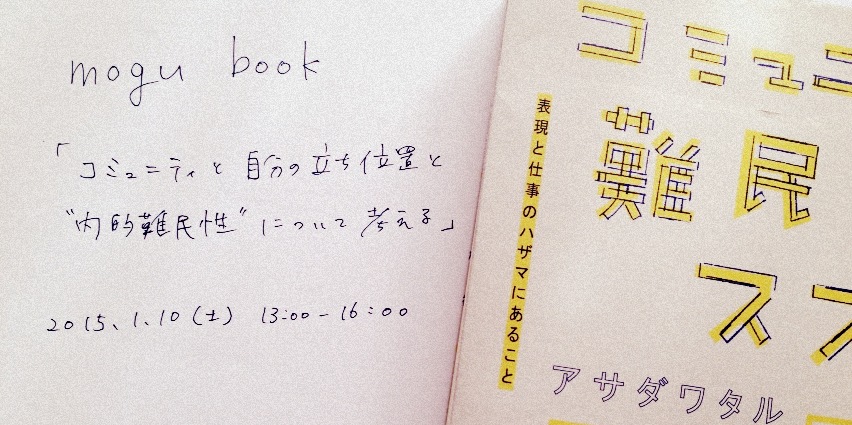 mogu book
「コミュニティと自分の立ち位置と
"内的難民性"について考える」
2015.1.10(土) 13:00-16:00
コミュニ
難民
ス
表現と仕事のハザマにあること
アサダワタル